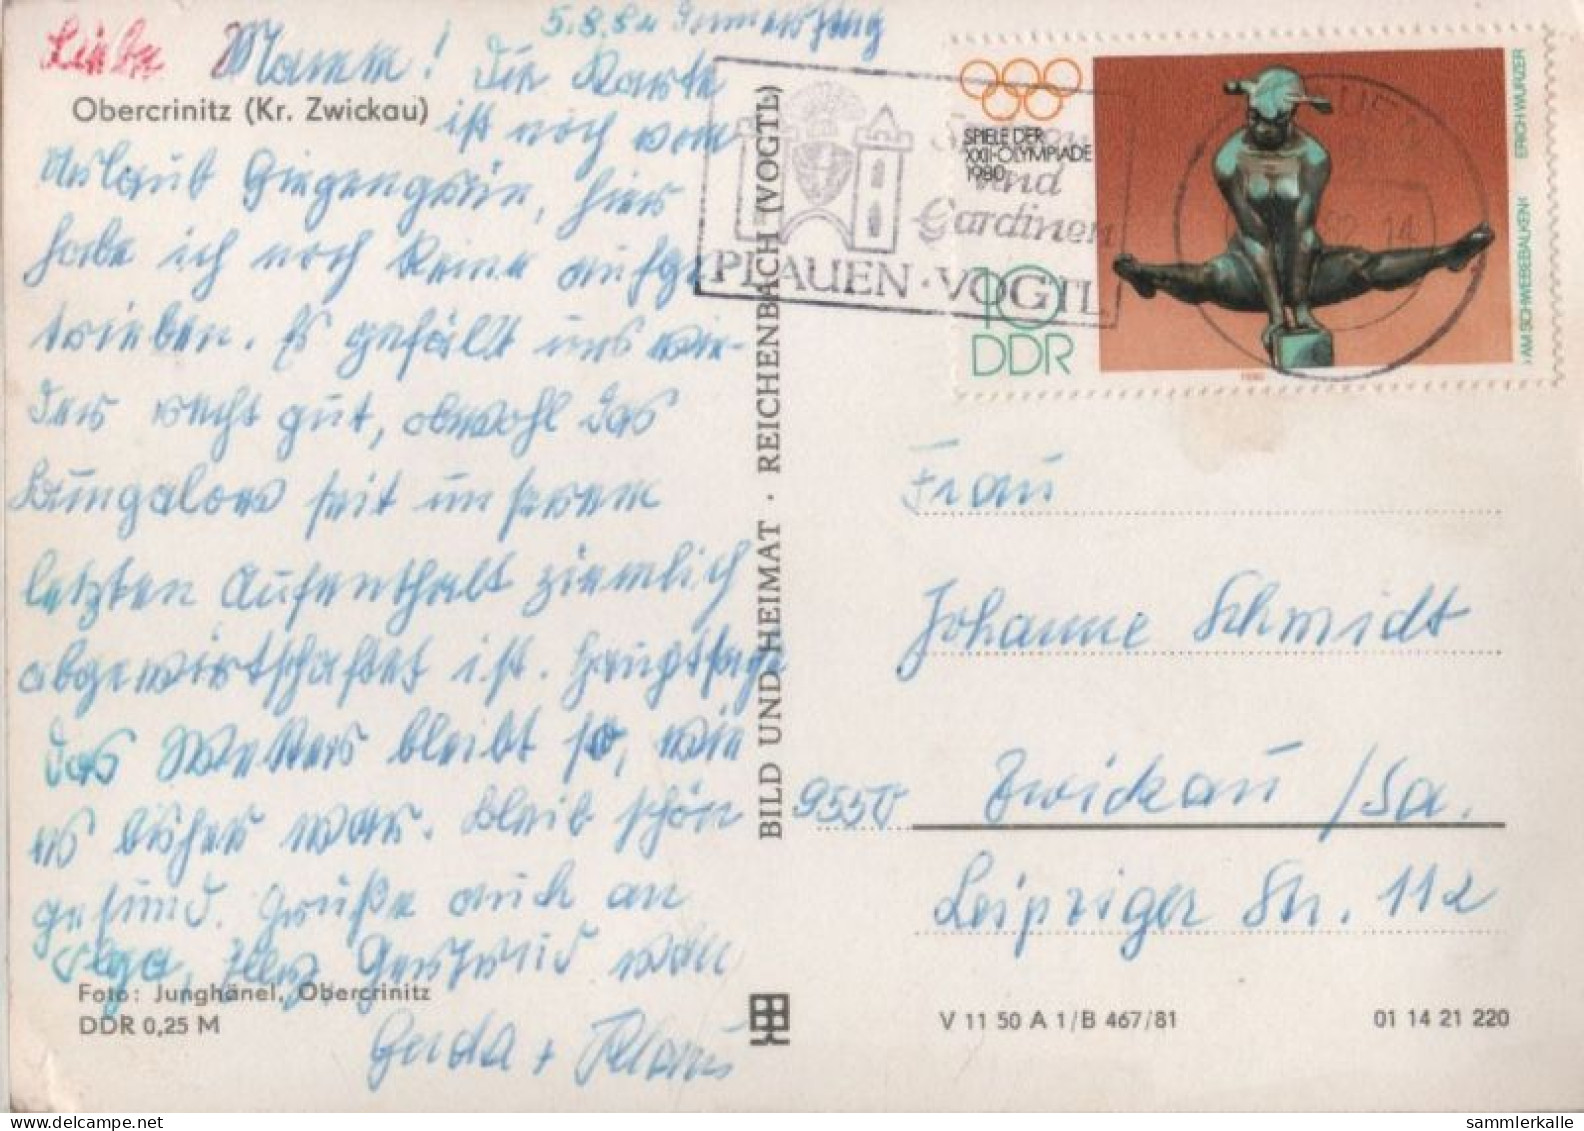 5.8.82 Donnerstag
Liebe Mamm! Die Karte
Obercrinitz (Kr. Zwickau)
ist noch vom
Urlaub Giegengrün, hier
habe ich noch keine aufge-
trieben. Es gefällt uns wie-
der recht gut, obwohl das
Bungalow seit unserem
letzten Aufenthalt ziemlich
abgewirtschaftet ist. Hauptsache
das Wetter bleibt so, wie
es bisher war. Bleib schön
gesund. Grüße auch an
Olga, Gertrud von
Gerda + Klaus
Foto: Junghänel, Obercrinitz
DDR 0,25 M
BILD UND HEIMAT · REICHENBACH (VOGTL)
Spitzen
und
Gardinen
PLAUEN · VOGTL
82.14
SPIELE DER
XXII·OLYMPIADE
1980
10
DDR
1980
›AM SCHWEBEBALKEN‹ ERICH WURZER
Frau
Johanne Schmidt
9550 Zwickau/Sa.
Leipziger Str. 112
V 11 50 A 1/B 467/81
01 14 21 220
sammlerkalle.com